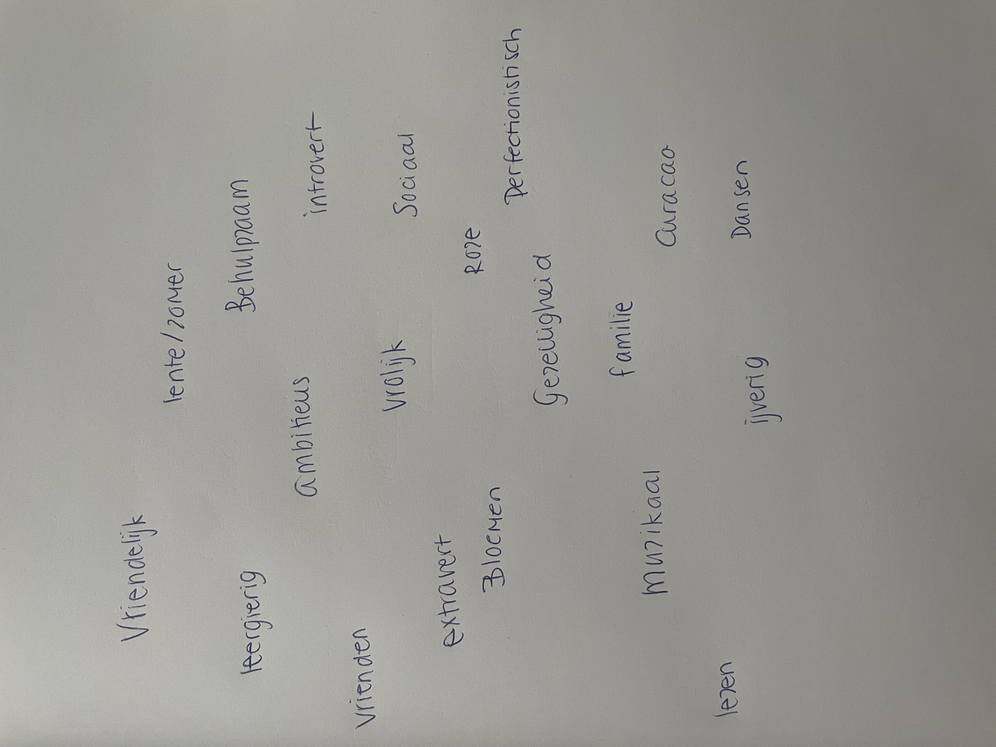 Vriendelijk
lente/zomer
leergierig
Behulpzaam
ambitieus
introvert
Vrienden
Vrolijk
Sociaal
extravert
Roze
Bloemen
Gezelligheid
Perfectionistisch
familie
Muzikaal
Curacao
lezen
ijverig
Dansen